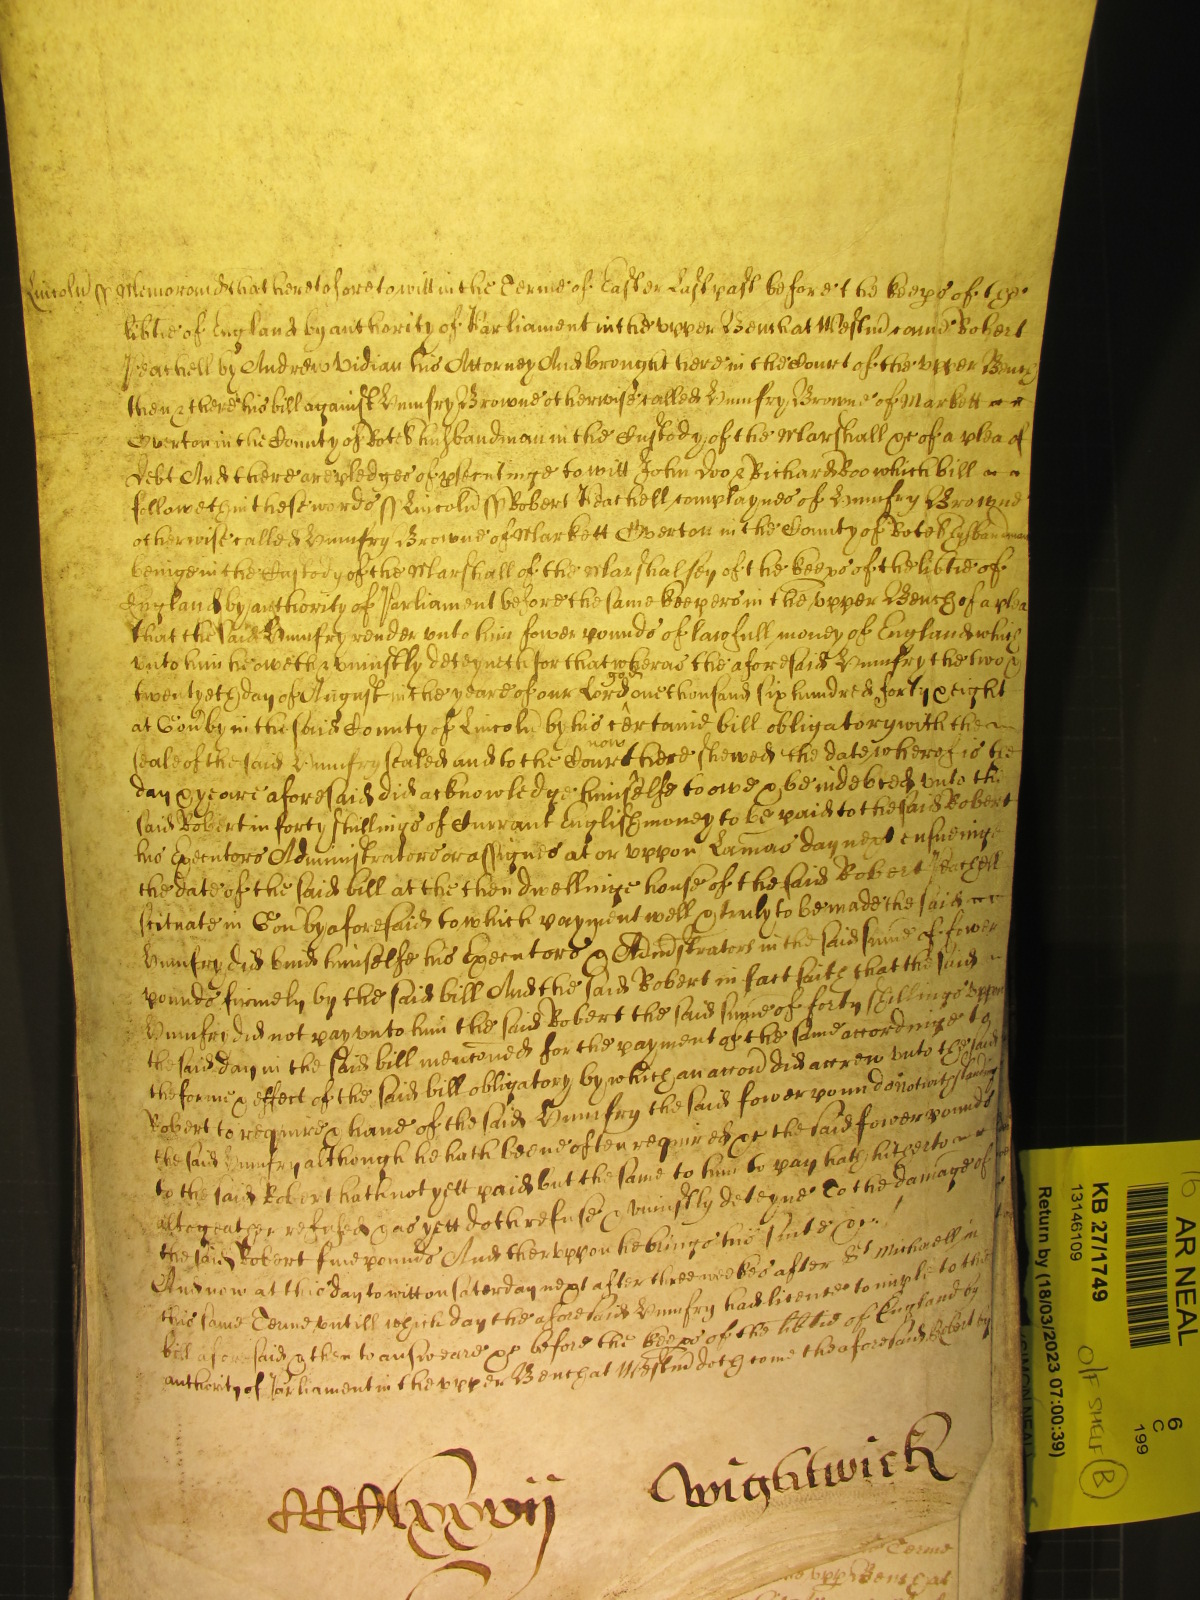 Lincoln ss Memorand that heretofore to witt in the Terme of Easter Last past before the keeps of the
libtie of England by authority of Parliament in the upper Bench at Westm came Robert
Peachell by Andrew Vidian his Attorney And brought here in the Court of the upper Bench
then & there his bill against Umfry Browne otherwise called Umfry Browne of Markett
Overton in the County of Rotel husbandman in the Custody of the Marshall &c of a plea of
debt And there are pledges of psecutinge to witt John Doo & Richard Roo which bill
followeth in these words ss Lincoln ss Robert Peachell complaynes of Umfry Browne
otherwise called Umfry Browne of Markett Overton in the County of Rotel husbandman
beinge in the Custody of the Marshall of the Marshalsey of the keeps of the libtie of
England by authority of Parliament before the same keepers in the upper Bench of a plea
that the said Umfry render unto him fower pounds of lawfull money of England which
unto him he oweth & uniustly deteyneth for that wheras the aforesaid Umfry the two &
twentyeth day of August in the yeare of our Lord god one thousand six hundred forty & eight
at Gonby in the said County of Lincoln by his certaine bill obligatory with the
seale of the said Umfry sealed and to the Court now here shewed the date whereof is the
day & yeare aforesaid did acknowledge himselfe to owe & be indebted unto the
said Robert in forty shillings of Currant English money to be paid to the said Robert
his Executors Administrators or assignes at or uppon Lamas day next ensueinge
the date of the said bill at the then dwellinge house of the said Robert Peachell
scituate in Gonby aforesaid to which payment well & truly to be made the said
Umfry did bind himselfe his Executors & Admistrators in the said sume of fower
pounds firmely by the said bill And the said Robert in fact saith that the said
Umfry did not pay unto him the said Robert the said sume of forty shillings uppon
the said day in the said bill mencioned for the payment of the same accordinge to
the forme & effect of the said bill obligatory by which an accon did accrew unto the said
Robert to require & have of the said Umfry the said fower pounds notwithstanding
the said Umfry although he hath beene often required &c the said fower pounds
to the said Robert hath not yett paid but the same to him to pay hath hitherto
altogeather refused & as yett doth refuse & uniustly deteyne To the damage of
the said Robert five pounds And theruppon he brings his suite &c
And now at this day to witt on Saterday next after three weekes after St Michaell in
this same Terme untill which day the aforesaid Umfry had licence to imple to the
bill aforesaid & then to answeare &c before the keeps of the libtie of England by
authority of Parliament in the upper Bench at Westm doth come the aforesaid Robert by
CCCClxxxvij Wightwick
Terme
upp Bench at
AR NEAL
6
C
199
KB 27/1749
13146109
O/F SHELF B
Return by (18/03/2023 07:00:39)
(SIMON NEAL)